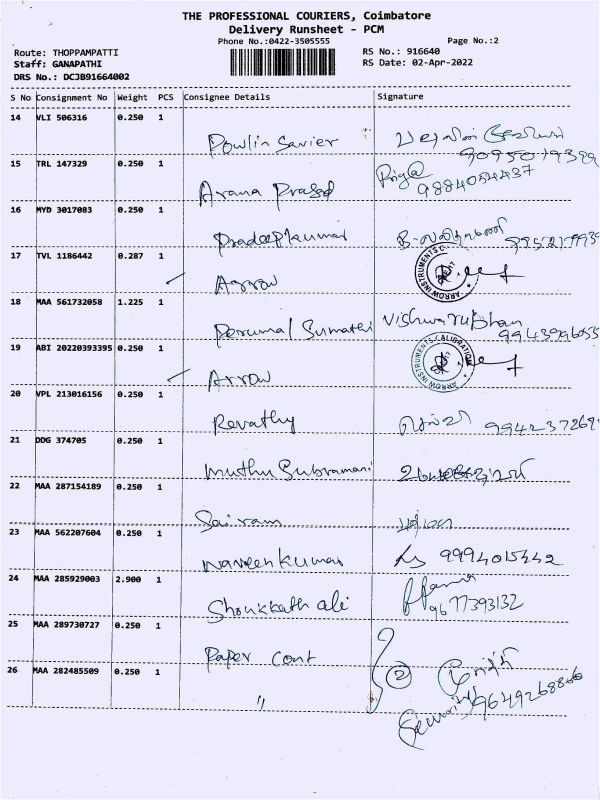 THE PROFESSIONAL COURIERS, Coimbatore
Delivery Runsheet - PCM
Phone No.:0422-3505555
Page No.:2
Route: THOPPAMPATTI
RS No.: 916640
Staff: GANAPATHI
RS Date: 02-Apr-2022
DRS No.: DCJB91664002
S No Consignment No Weight PCS Consignee Details Signature
14 VLI 506316 0.250 1
Powlin Savier
15 TRL 147329 0.250 1
Arana Prasad
9884054437
16 MYD 3017083 0.250 1
Pradeepkumar
17 TVL 1186442 0.287 1
Arrow
ARROW INSTRUMENTS
18 MAA 561732058 1.225 1
Perumal Sumathi Vishwarubhan
19 ABI 20220393395 0.250 1
Arrow
ARROW INSTRUMENTS CALIBRATION
20 VPL 213016156 0.250 1
Revathy
21 DDG 374705 0.250 1
Muthu Subramani
22 MAA 287154189 0.250 1
Sai ram
23 MAA 562207604 0.250 1
Naveen kumar 9994015442
24 MAA 285929003 2.900 1
Shoukkath ali
9677393132
25 MAA 289730727 0.250 1
Paper Cont 2
26 MAA 282485509 0.250 1
"
Security